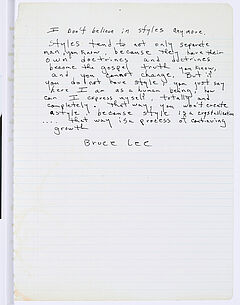 I don't believe in styles anymore.
Styles tend to not only separate
man, you know, because they have their
own doctrines and doctrines
become the gospel truth you know,
and you cannot change. But if
you do not have style, if you just say
here I am as a human being, how
can I express myself, totally and
completely. That way, you won't create
a style, because style is a crystallization
.... that way is a process of continuing
growth
Bruce Lee